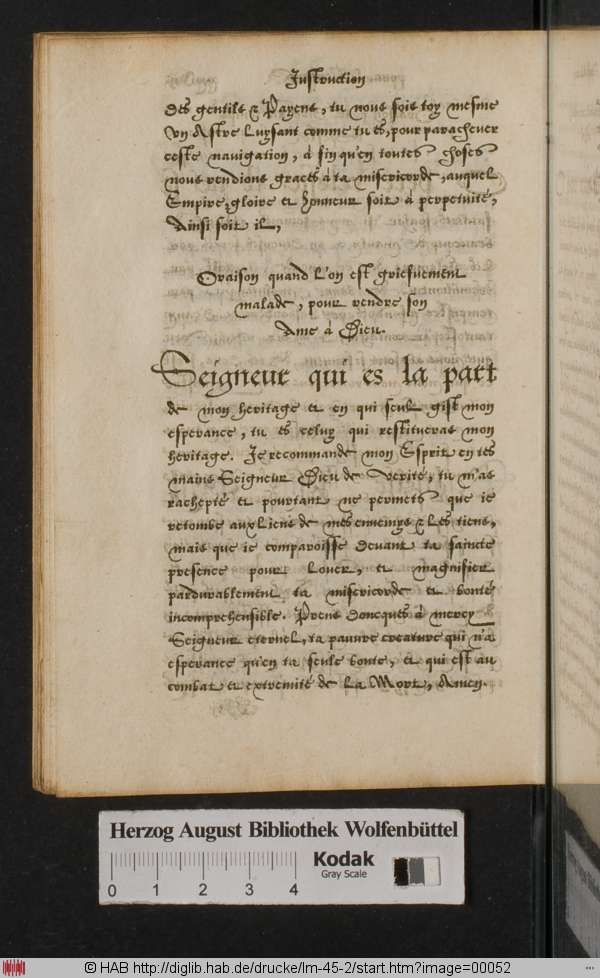 Instruction
des gentils & Payens, tu nous sois toy mesme
vn Astre Luysant comme tu es, pour parachever
ceste navigation, à fin qu'en toutes choses
nous rendions graces à ta misericorde, auquel
Empire, gloire et honneur soit à perpetuité,
Ainsi soit il,
Oraison quand l'on est griefuement
malade, pour rendre son
Ame à Dieu.
Seigneur qui es la part
de mon heritage et en qui seul gist mon
esperance, tu es celuy qui restitueras mon
heritage. Je recommande mon Esprit en tes
mains Seigneur Dieu de verité, tu m'as
rachepté et pourtant ne permets que ie
retombe aux Liens de mes ennemys & les tiens,
mais que ie comparoisse devant ta saincte
presence pour Louer, et magnifier
pardurablement ta misericorde et bonté
incomprehensible. Prens doncques à mercy
Seigneur eternel, ta pauure creature qui n'a
esperance qu'en ta seule bonte, et qui est au
combat et extremité de La Mort, Amen.
Herzog August Bibliothek Wolfenbüttel
0 1 2 3 4
Kodak
Gray Scale
© HAB http://diglib.hab.de/drucke/lm-45-2/start.htm?image=00052